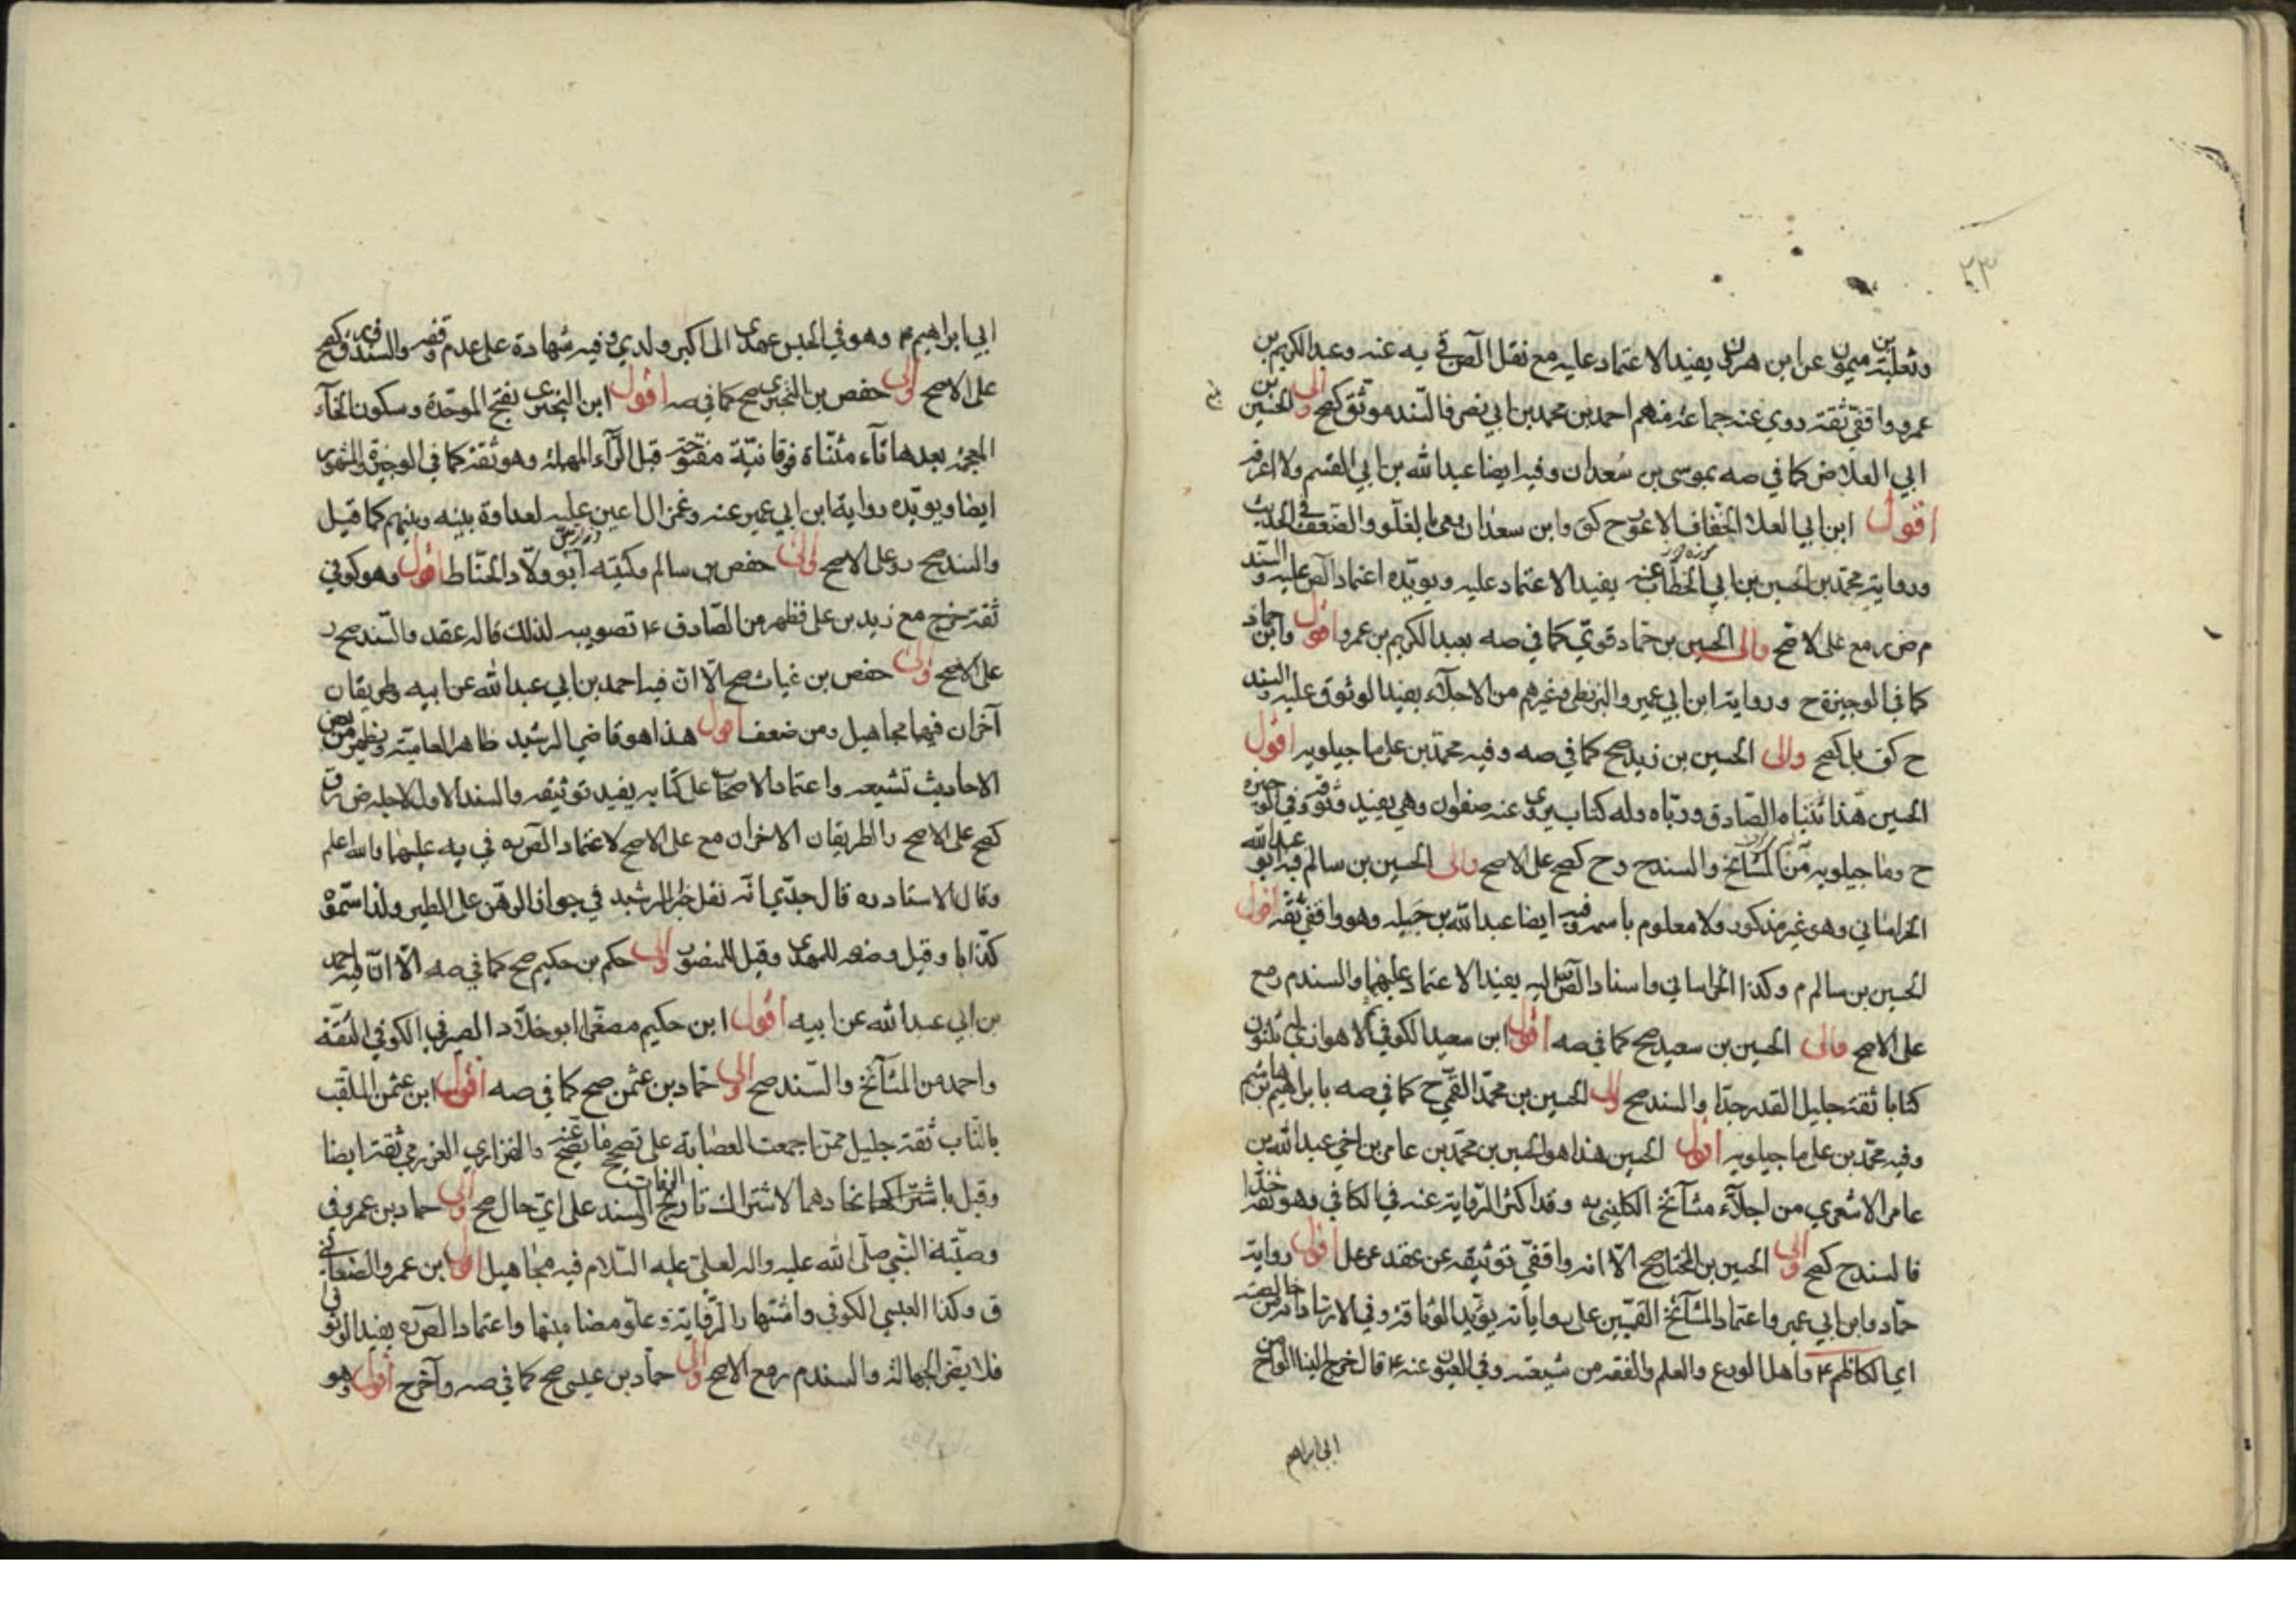 ٢٣
وثعلبة بن ميمون عن ابن هرون يفيد الاعتماد عليه مع نقل الص في يه عنه وعبد الكريم بن
عمرو واقفي ثقة روي عنه جماعة منهم احمد بن محمد بن ابي نصر فالسند موثق كصح والى الحسين بن
ابي العلا ض كما في صه بموسى بن سعدان وفيه ايضا عبد الله بن ابي القسم ولا اعرفه
اقول ابن ابي العلا الخفاف الاعور ح كق وابن سعدان رمى بالغلو والضعف في الحديث
ورواية محمد بن الحسين بن ابي الخطاب عنه يفيد الاعتماد عليه ويويده اعتماد الص عليه والسند
م ض ر مع على الاصح والى الحسين بن حماد قوي كما في صه بعبد الكريم بن عمرو اقول وابن حماد
كما في الوجيزة ح ورواية ابن ابي عمير والبزنطي وغيرهم من الاجلاء يفيد الوثوق عليه والسند
ح كق بل كصح والى الحسين بن زيد صح كما في صه وفيه محمد بن علي ماجيلويه اقول
الحسين هذا تبناه الصادق ورباه وله كتاب يروى عنه صفوان وهي يفيد وثوقه وفي الوجيزة
ح وماجيلويه من المشائخ والسند ح رح كصح على الاصح والى الحسين بن سالم فيه ابو عبد الله
الخراساني وهو غير مذكور ولا معلوم باسمه وفيه ايضا عبد الله بن جبله وهو واقفي ثقة اقول
الحسين بن سالم م وكذا الخراساني واسناد الص اليه يفيد الاعتماد عليهما والسند م رمع
على الاصح والى الحسين بن سعيد صح كما في صه اقول ابن سعيد الكوفي الاهوازي له ثلثون
كتابا ثقة جليل القدر جدا والسند صح والى الحسين بن محمد القمي ح كما في صه بابراهيم بن هاشم
وفيه محمد بن علي ماجيلويه اقول الحسين هذا هو الحسين بن محمد بن عامر بن اخي عبد الله بن
عامر الاشعري من اجلاء مشائخ الكليني ره وقد اكثر الرواية عنه في الكافي وهو ثقة
فالسند ح كصح والى الحسين بن المختار صح الا انه واقفي توثيقه عن عقد عن عل اقول رواية
حماد وابن ابي عمير واعتماد المشائخ القميين على رواياته يؤيد الوثاقة وفي الارشاد انه من خاصة
اي الكاظم ٤ واهل الورع والعلم والفقه من شيعته وفي العيون عنه ٤ قال خرج الينا الواح من
ابي ابراهيم
ابي ابراهيم ٤ وهو في الحبس عهدي الى اكبر ولدي وفيه شهادة على عدم وقفه والسند ق كصح
على الاصح والى حفص بن البختري صح كما في صه اقول ابن البختري بفتح الموحدة وسكون الخاء
المعجمة بعدها تاء مثناة فوقانية مفتوحة قبل الراء المهملة وهو ثقة كما في الوجيزة والمشهور
ايضا ويويده رواية ابن ابي عمير عنه وغمز ال اعين عليه لعداوة بينه وبينهم كما قيل
والسند صح ر وعلى الاصح والى حفص بن سالم وكنيته ابو ولاد الحناط اقول وهو كوفي
ثقة خرج مع زيد بن علي فظهر من الصادق ٤ تصويبه لذلك قاله عقد والسند صح ر
على الاصح والى حفص بن غياث صح الا ان فيه احمد بن ابي عبد الله عن ابيه وطريقان
آخران فيهما مجاهيل ومن ضعف اقول هذا هو قاضي الرشيد ظاهر العامية ويظهر من بعض
الاحاديث تشيعه واعتماد الاصحاب على كتابه يفيد توثيقه والسند الاول لاجله ض ر ق
كصح على الاصح والطريقان الاخران مع على الاصح لاعتماد الص ره في يه عليهما والله اعلم
وقال الاستاد ره قال جدي انه نقل خبر الرشيد في جواز الرهن على الطير ولذا سموه
كذابا وقيل وضعه للمهدي وقيل للمنصور والى حكم بن حكيم صح كما في صه الا ان فيه احمد
بن ابي عبد الله عن ابيه اقول ابن حكيم مصغرا ابو خلاد الصيرفي الكوفي الثقة
واحمد من المشائخ والسند صح والى حماد بن عثمن صح كما في صه اقول ابن عثمن الملقب
بالناب ثقة جليل ممن اجمعت العصابة على تصحيح ما يصح عنه والفزاري العرزمي ثقة ايضا
وقيل باشتراكهما اتحادهما لاشتراك تاريخ الوفات السند على اي حال صح والى حماد بن عمرو في
وصية النبي صلى الله عليه واله لعلي عليه السلام فيه مجاهيل اقول ابن عمرو الصنعاني
ق وكذا العبسي الكوفي واشتها را لرواية وعلو مضامينها واعتماد الص ره يفيد الوثوق
فلا يضر الجهالة والسند م رمع الاصح والى حماد بن عيسى صح كما في صه وآخر ح اقول وهو